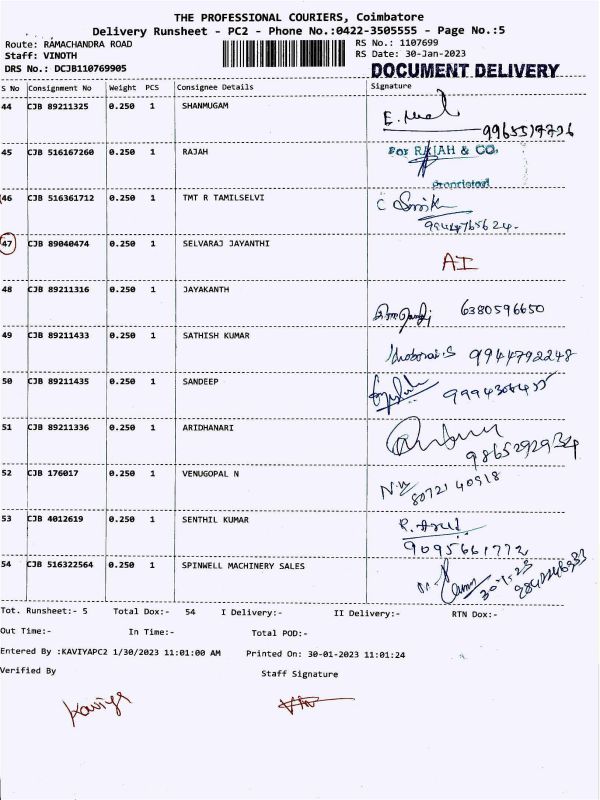 THE PROFESSIONAL COURIERS, Coimbatore
Delivery Runsheet - PC2 - Phone No.:0422-3505555 - Page No.:5
Route: RAMACHANDRA ROAD RS No.: 1107699
Staff: VINOTH RS Date: 30-Jan-2023
DRS No.: DCJB110769905 DOCUMENT DELIVERY
S No Consignment No Weight PCS Consignee Details Signature
44 CJB 89211325 0.250 1 SHANMUGAM
45 CJB 516167260 0.250 1 RAJAH For RAJAH & CO.
Proprietor
46 CJB 516361712 0.250 1 TMT R TAMILSELVI
47 CJB 89040474 0.250 1 SELVARAJ JAYANTHI AI
48 CJB 89211316 0.250 1 JAYAKANTH 6380596650
49 CJB 89211433 0.250 1 SATHISH KUMAR 9944792248
50 CJB 89211435 0.250 1 SANDEEP
51 CJB 89211336 0.250 1 ARIDHANARI
52 CJB 176017 0.250 1 VENUGOPAL N 8072140918
53 CJB 4012619 0.250 1 SENTHIL KUMAR
9095661772
54 CJB 516322564 0.250 1 SPINWELL MACHINERY SALES 30-1-23
Tot. Runsheet:- 5 Total Dox:- 54 I Delivery:- II Delivery:- RTN Dox:-
Out Time:- In Time:- Total POD:-
Entered By :KAVIYAPC2 1/30/2023 11:01:00 AM Printed On: 30-01-2023 11:01:24
Verified By Staff Signature
Kaviya